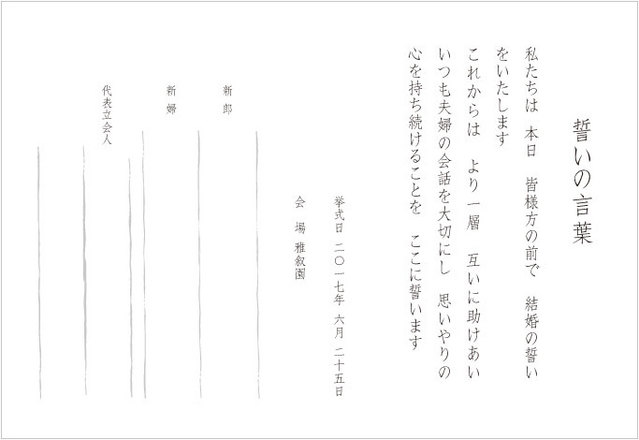 誓いの言葉
私たちは　本日　皆様方の前で　結婚の誓い
をいたします
これからは　より一層　互いに助けあい
いつも夫婦の会話を大切にし　思いやりの
心を持ち続けることを　ここに誓います
挙式日　二〇一七年　六月　二十五日
会　場　雅叙園
新郎
新婦
代表立会人